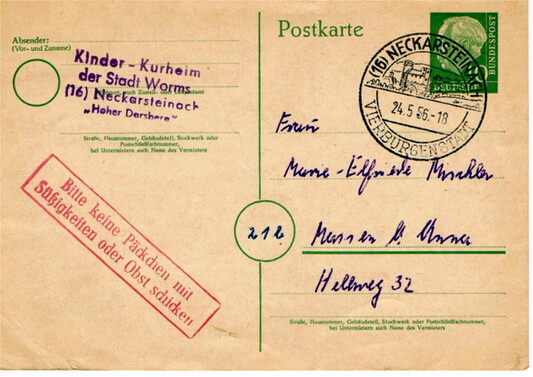 Postkarte
Absender:
(Vor- und Zuname)
Kinder-Kurheim
der Stadt Worms
(16) Neckarsteinach
„Hoher Darsberg"
Straße, Hausnummer, Gebäudeteil, Stockwerk oder
Postschließfachnummer,
bei Untermietern auch Name des Vermieters
Bitte keine Päckchen mit
Süßigkeiten oder Obst schicken
DEUTSCHE
BUNDESPOST
(16) NECKARSTEINACH
24.5.56.-18
VIERBURGENSTADT
Frau
Marie-Elfriede
21b
Massen b. Unna
Hellweg 32
Straße, Hausnummer, Gebäudeteil, Stockwerk oder Postschließfachnummer,
bei Untermietern auch Name des Vermieters